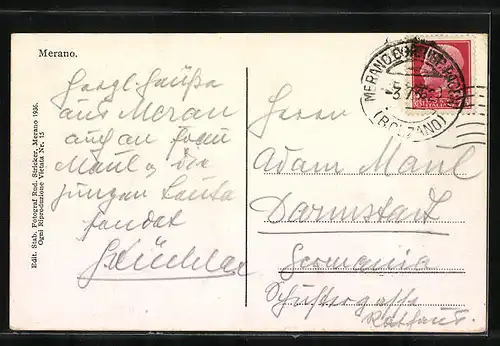 Merano.
Herzl. Grüße
aus Meran
auch an Frau
Maul u. die
jungen Leute
sendet
Edit. Stab. Fotograf Rud. Stricker, Merano 1936.
Ogni Riproduzione Vietata Nr. 15
MERANO
(BOLZANO)
Herrn
Adam Maul
Darmstadt
Germania
Rathaus.